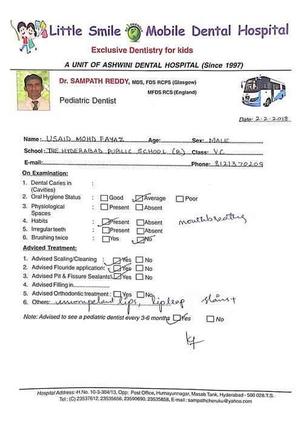 Little Smile Mobile Dental Hospital
Exclusive Dentistry for kids
A UNIT OF ASHWINI DENTAL HOSPITAL (Since 1997)
Dr. SAMPATH REDDY, MDS, FDS RCPS (Glasgow)
MFDS RCS (England)
Pediatric Dentist
Date: 2-2-2018
Name: USAID MOHD FAYAZ Age: Sex: MALE
School: THE HYDERABAD PUBLIC SCHOOL (R) Class: V C
E-mail: Phone: 8121370209
On Examination:
1. Dental Caries in :
(Cavities)
2. Oral Hygiene Status : Good Average Poor
3. Physiological : Present Absent
Spaces
4. Habits : Present Absent mouthbreathing
5. Irregular teeth : Present Absent
6. Brushing twice : Yes No
Adviced Treatment:
1. Advised Scaling/Cleaning : Yes No
2. Advised Fluoride application: Yes No
3. Advised Pit & Fissure Sealants: Yes No
4. Advised Filling in
5. Advised Orthodontic treatment : Yes No
6. Others: lips, stains+
Note: Advised to see a pediatric dentist every 3-6 months Yes No
Hospital Address: H.No. 10-3-304/13, Opp: Post Office, Humayunnagar, Masab Tank, Hyderabad - 500 028 T.S.
Tel.: (O) 23537612, 23535656, 23550690, 23535858, E-mail: sampathcheruku@yahoo.com